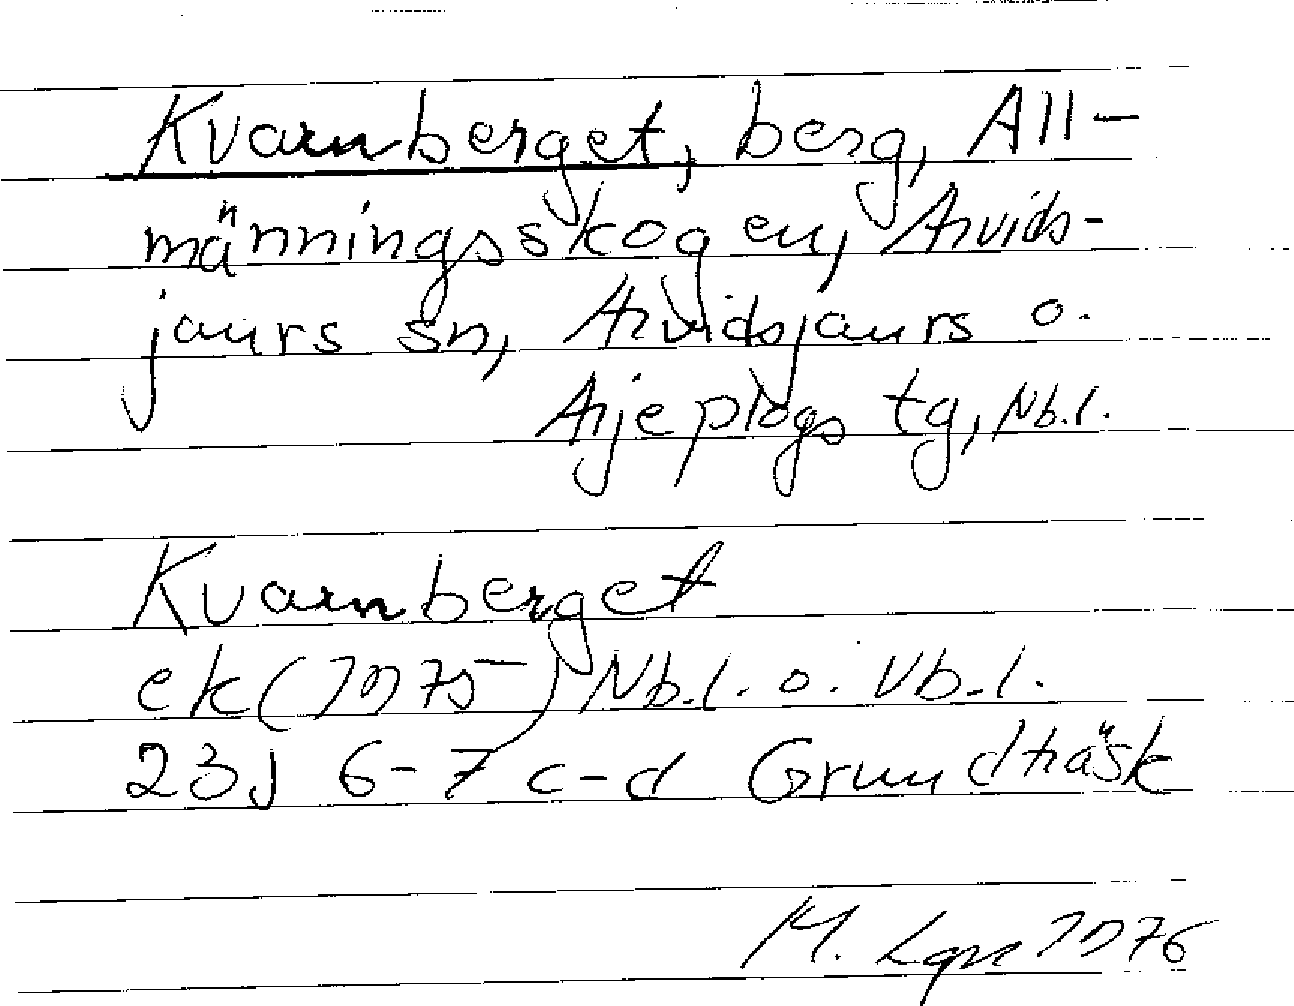 Kvarnberget, berg, All-
männingsskogen, Arvids-
jaurs sn, Arvidsjaurs o.
Arjeplogs tg, Nb.l.
Kvarnberget
ek (1975) Nb.l. o. Vb.l.
23J 6-7 c-d Grundträsk
M. Lgn 1976